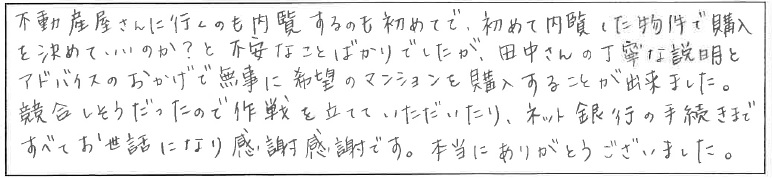 不動産屋さんに行くのも内覧するのも初めてで、初めて内覧した物件で購入
を決めていいのか？と不安なことばかりでしたが、田中さんの丁寧な説明と
アドバイスのおかげで無事に希望のマンションを購入することが出来ました。
競合しそうだったので作戦を立てていただいたり、ネット銀行の手続きまで
すべてお世話になり感謝感謝です。本当にありがとうございました。